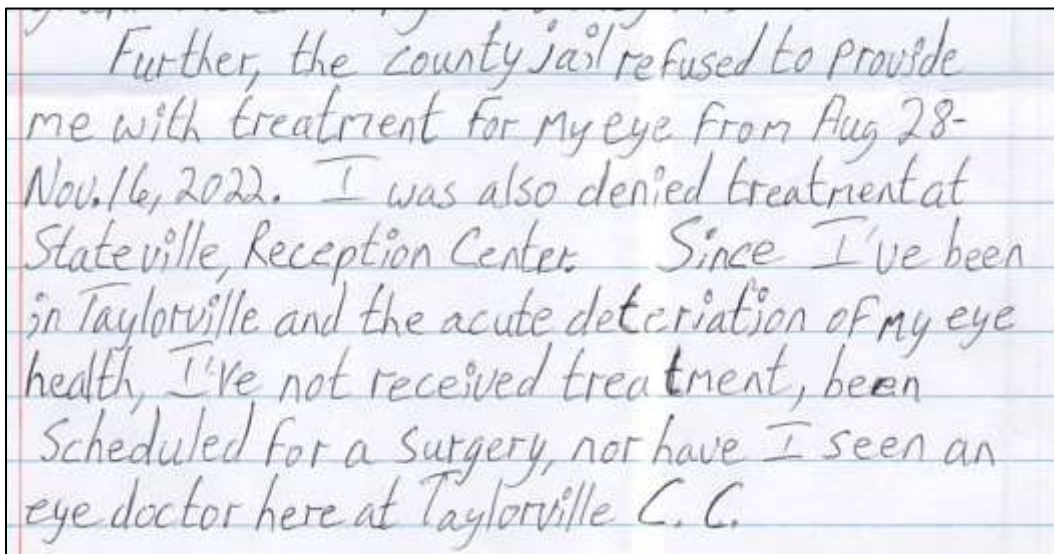 Further, the county jail refused to provide
me with treatment for my eye from Aug 28-
Nov. 16, 2022. I was also denied treatment at
Stateville, Reception Center. Since I've been
in Taylorville and the acute deteriation of my eye
health, I've not received treatment, been
scheduled for a surgery, nor have I seen an
eye doctor here at Taylorville C. C.